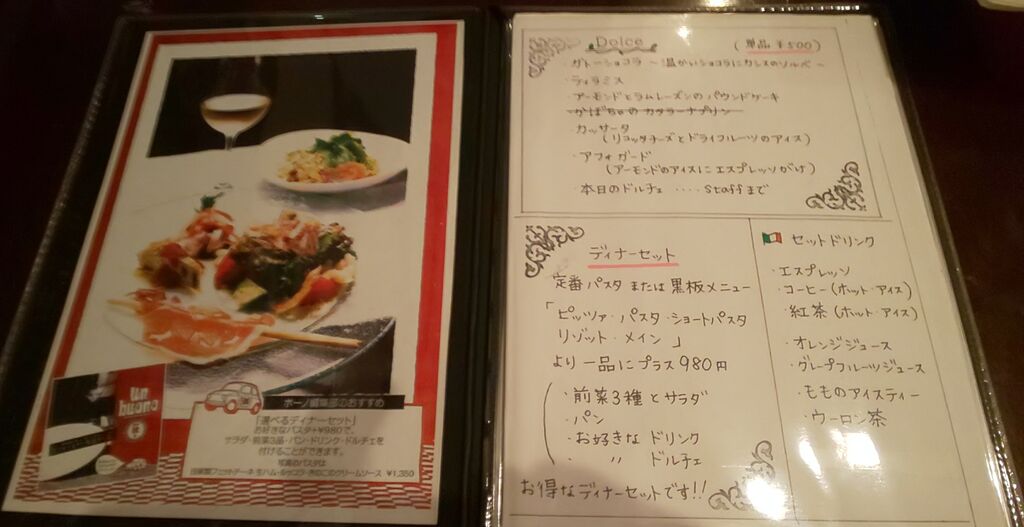 un
buono
ボーノ編集部のおすすめ
「選べるディナーセット」
お好きなパスタ+¥980で、
サラダ・前菜3品・パン・ドリンク・ドルチェを
付けることができます。
写真のパスタは
生ハム・ルッコラ・きのこのクリームソース ¥1,350
Dolce (単品 ¥500)
・ガトーショコラ ~温かいショコラにカシスのソルベ~
・ティラミス
・アーモンドとラムレーズンのパウンドケーキ
・かぼちゃのカタラーナプリン
・カッサータ
(リコッタチーズとドライフルーツのアイス)
・アフォガード
(アーモンドのアイスにエスプレッソがけ)
・本日のドルチェ ‥‥ staffまで
ディナーセット
定番パスタ または 黒板メニュー
「ピッツァ・パスタ・ショートパスタ
リゾット・メイン」
より一品にプラス980円
・前菜3種とサラダ
・パン
・お好きな ドリンク
・ 〃 ドルチェ
お得なディナーセットです!!
セットドリンク
・エスプレッソ
・コーヒー(ホット・アイス)
・紅茶(ホット・アイス)
・オレンジジュース
・グレープフルーツジュース
・もものアイスティー
・ウーロン茶